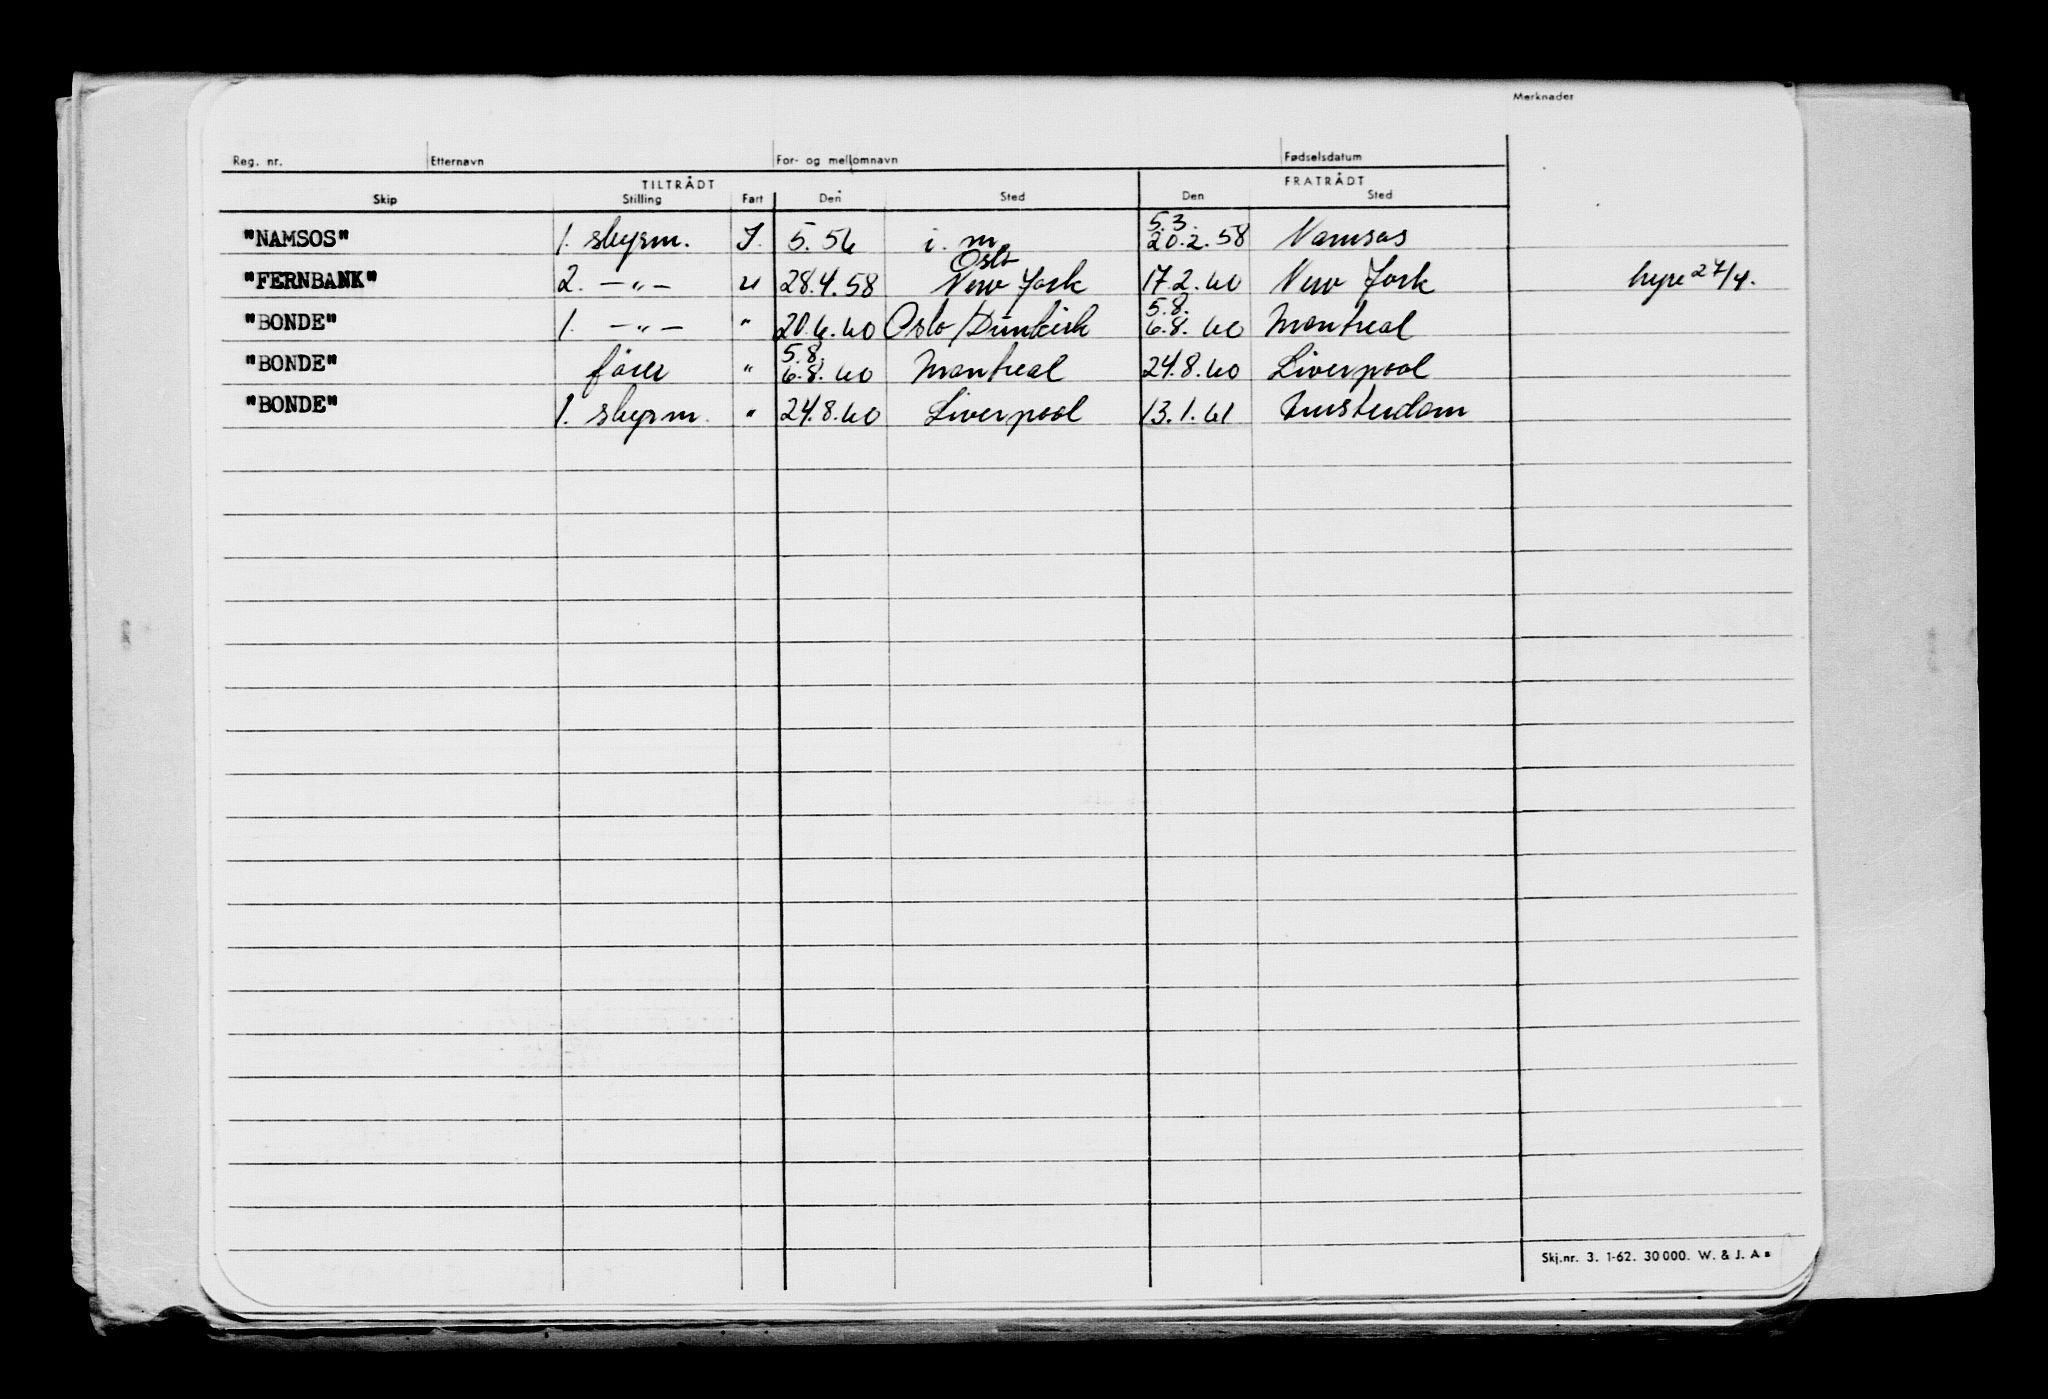 Merknader
Reg. nr. Etternavn For- og mellomnavn Fødselsdatum
TILTRÅDT FRATRÅDT
Skip Stilling Fart Den Sted Den Sted
5.3.
"NAMSOS" 1. styrm. 5.56 i. m. 20.2.58 Namsos
Oslo
"FERNBANK" 2. —"— " 28.4.58 New York 17.2.60 New York hyre 27/4.
5.8.
"BONDE" 1. —"— " 20.6.60 Oslo/Dunkirk 6.8.60 Montreal
5.8.
"BONDE" fører " 6.8.60 Montreal 24.8.60 Liverpool
"BONDE" 1. styrm. " 24.8.60 Liverpool 13.1.61 Amsterdam
Skj.nr. 3. 1-62. 30 000. W. & J. A s